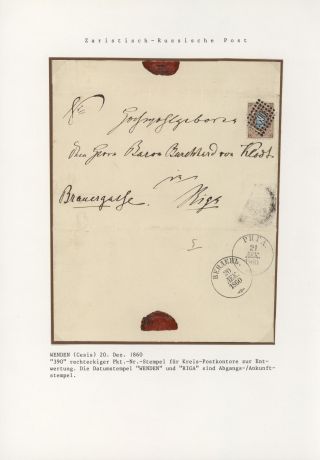 Zaristisch-Russische Post
Hochwohlgeboren
Dem Herrn Baron Burchhard von Klodt
in
Brauergasse.
Riga
РИГА
21
ДЕК.
1860
ВЕНДЕНЪ
20
ДЕК.
1860
WENDEN (Cesis) 20. Dez. 1860
"390" rechteckiger Pkt.-Nr.-Stempel für Kreis-Postkontore zur Ent-
wertung. Die Datumstempel "WENDEN" und "RIGA" sind Abgangs-/Ankunft-
stempel.